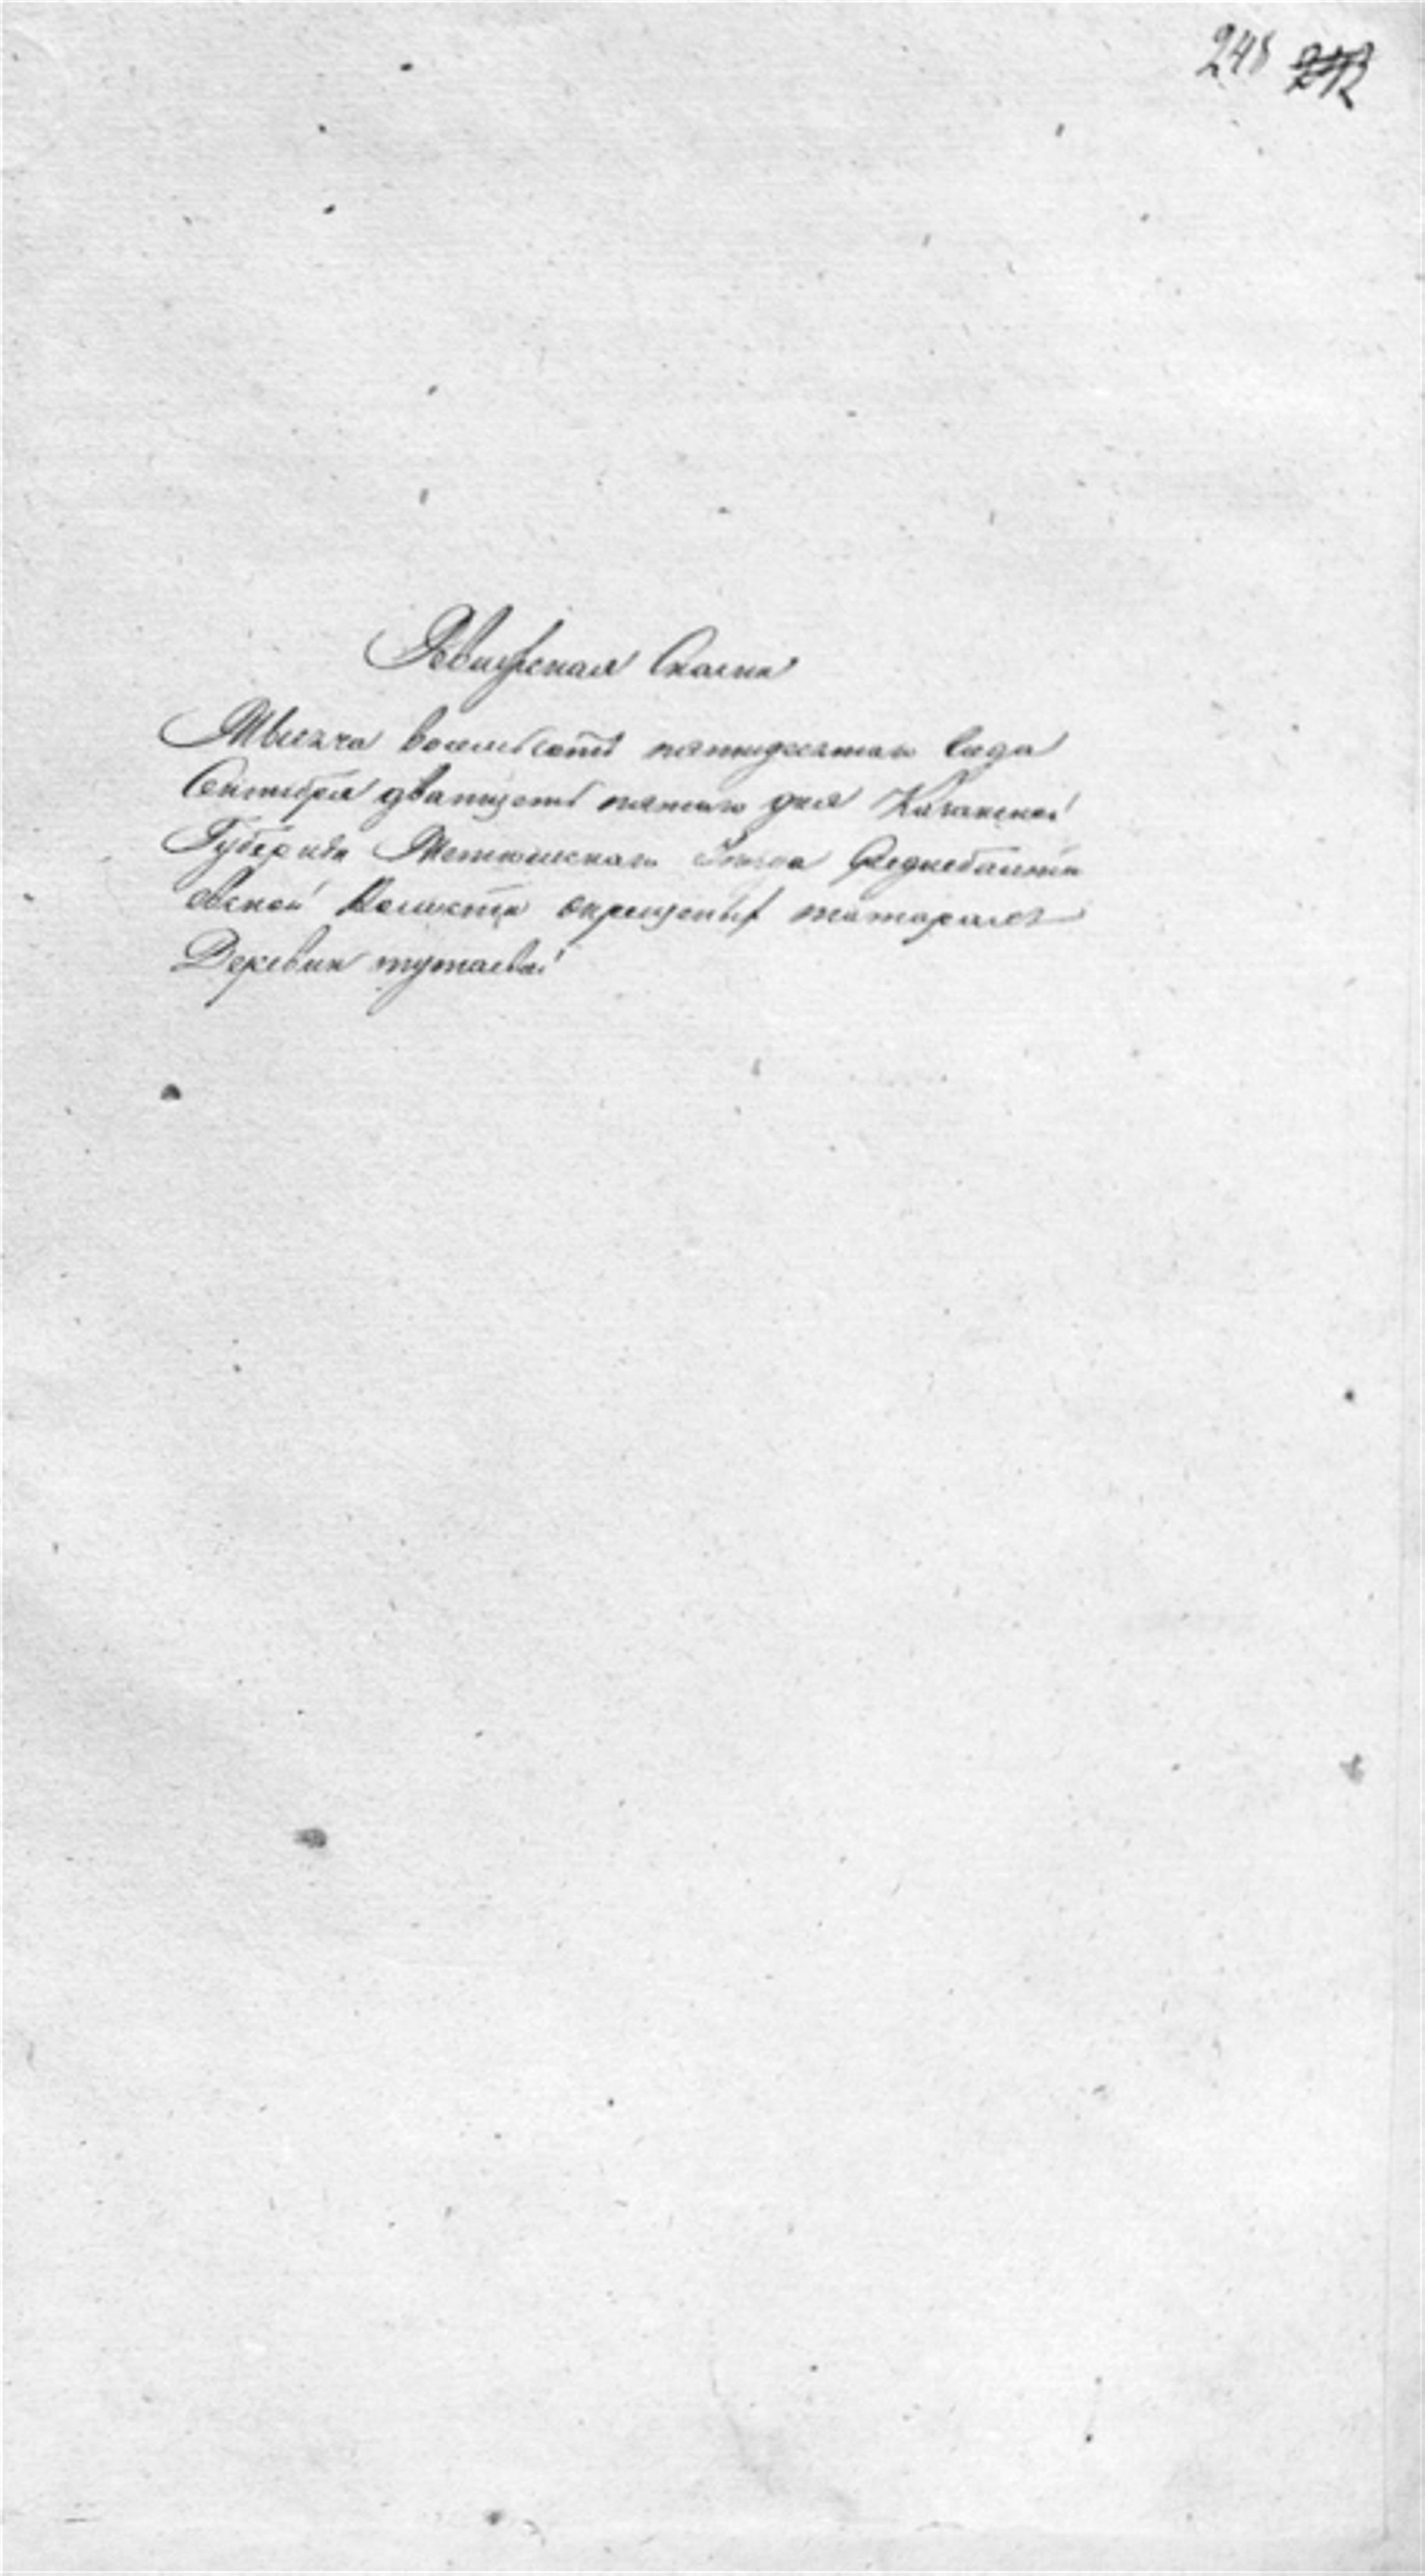 248
Ревижская Скаска
Тысяча восемьсотъ пятидесятаго Года
Сентября дватцать пятаго дня Казанской
Губерніи Тетюшскаго Уезда Среднебалтаи
евской Волости окрещеныхъ татаръ
Деревни тутаевой